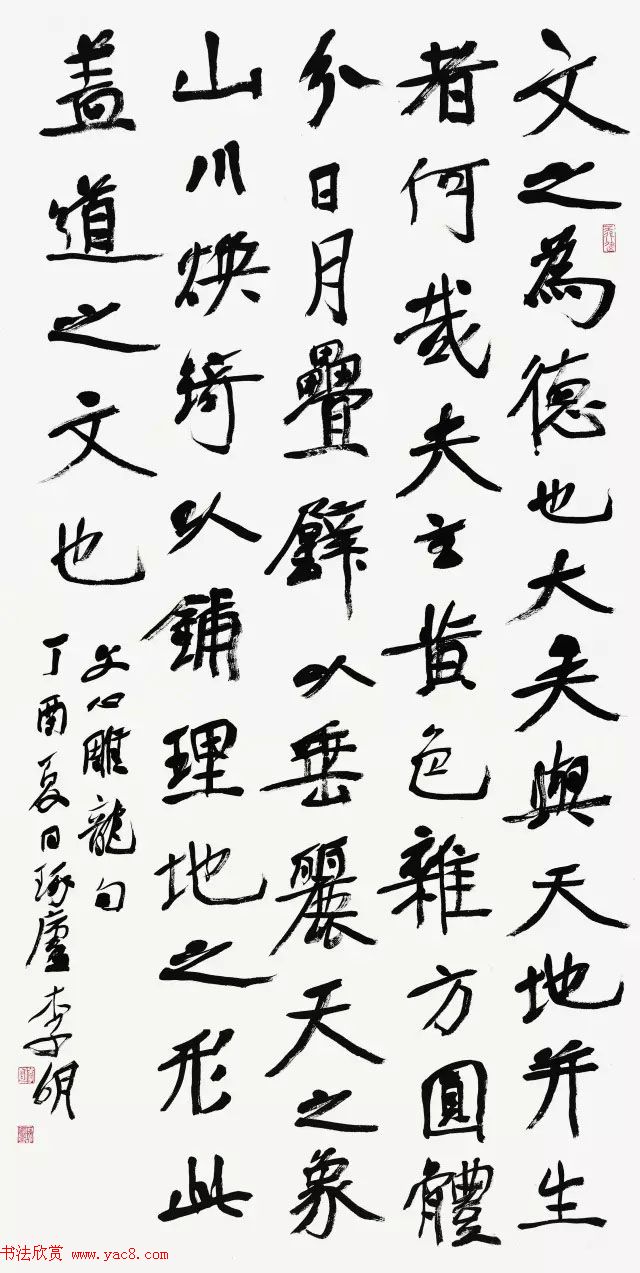 文之為德也大矣與天地并生
者何哉夫玄黄色雜方圓體
分日月疊璧以垂麗天之象
山川煥綺以鋪理地之形此
盖道之文也
文心雕龍句
丁酉夏日琢廬李明
书法欣赏 www.yac8.com